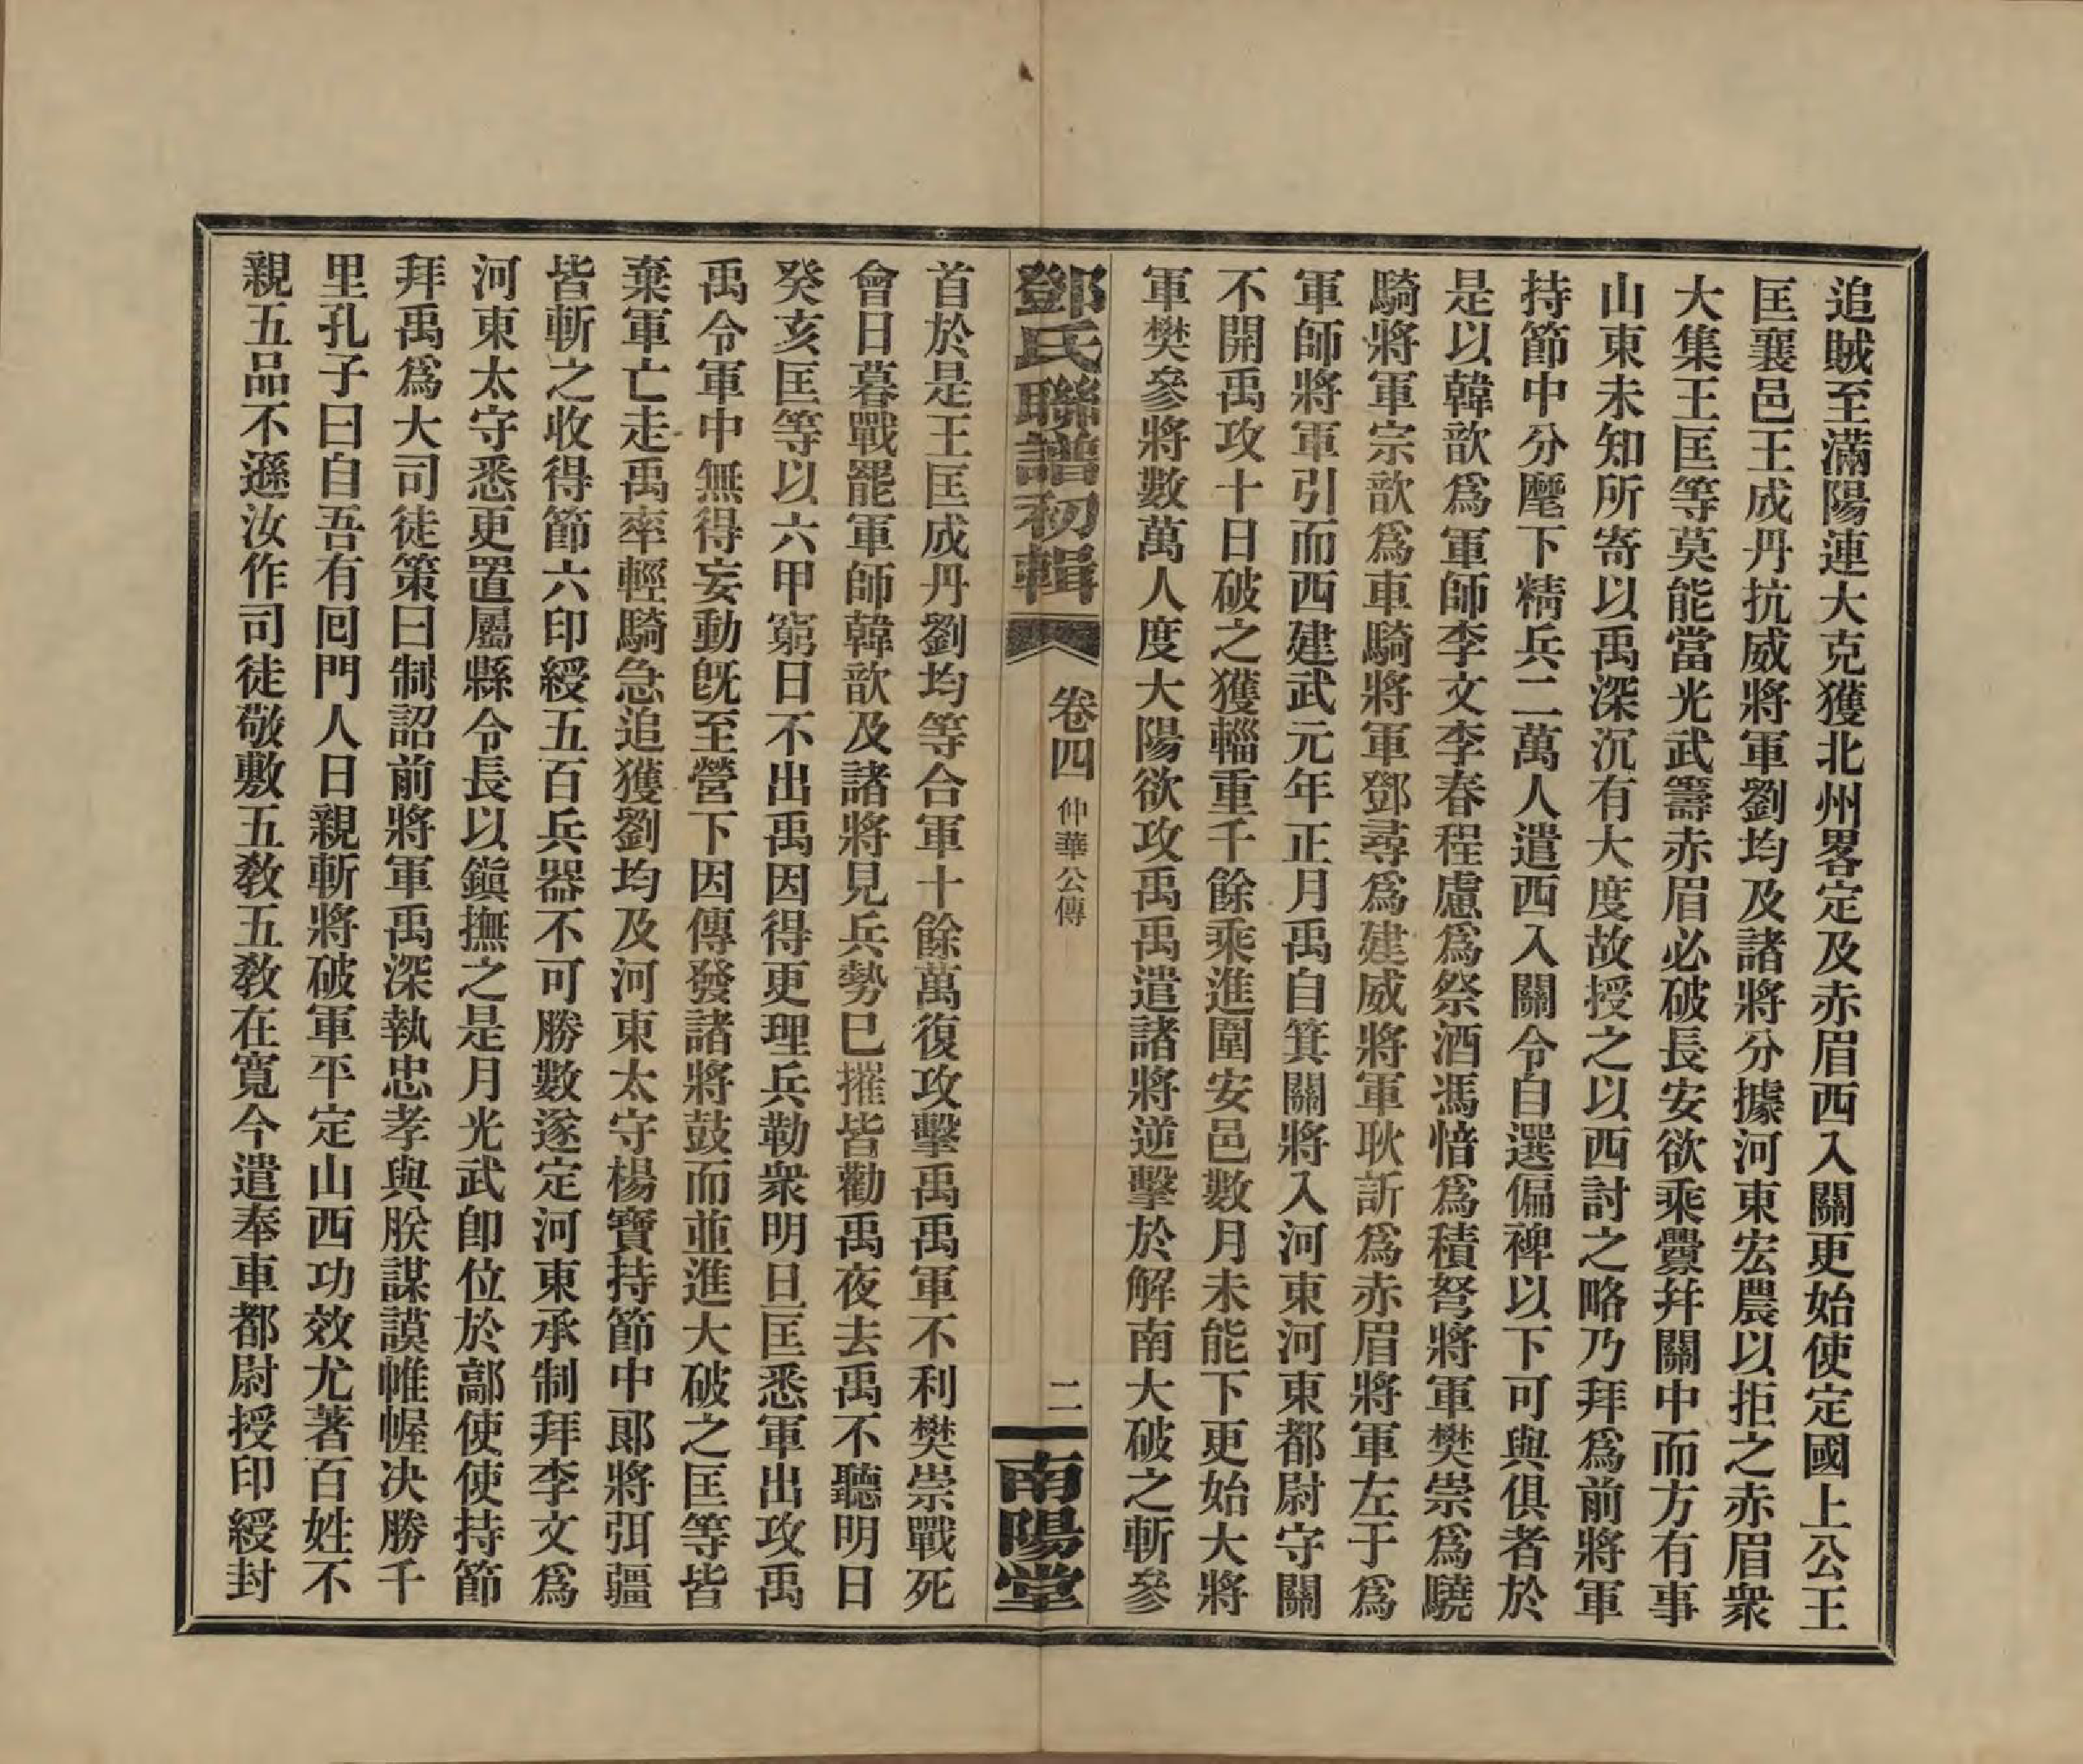 追賊至滿陽連大克獲北州畧定及赤眉西入關更始使定國上公王
匡襄邑王成丹抗威將軍劉均及諸將分據河東宏農以拒之赤眉衆
大集王匡等莫能當光武籌赤眉必破長安欲乘釁幷關中而方有事
山東未知所寄以禹深沉有大度故授之以西討之略乃拜爲前將軍
持節中分麾下精兵二萬人遣西入關令自選偏裨以下可與俱者於
是以韓歆爲軍師李文李春程慮爲祭酒馮愔爲積弩將軍樊崇爲驍
騎將軍宗歆爲車騎將軍鄧尋爲建威將軍耿訢爲赤眉將軍左于爲
軍師將軍引而西建武元年正月禹自箕關將入河東河東都尉守關
不開禹攻十日破之獲輜重千餘乘進圍安邑數月未能下更始大將
軍樊參將數萬人度大陽欲攻禹禹遣諸將逆擊於解南大破之斬參
鄧氏聯譜初輯 卷四 仲華公傳 二 南陽堂
首於是王匡成丹劉均等合軍十餘萬復攻擊禹禹軍不利樊崇戰死
會日暮戰罷軍師韓歆及諸將見兵勢已摧皆勸禹夜去禹不聽明日
癸亥匡等以六甲窮日不出禹因得更理兵勒衆明日匡悉軍出攻禹
禹令軍中無得妄動旣至營下因傳發諸將鼓而並進大破之匡等皆
棄軍亡走禹率輕騎急追獲劉均及河東太守楊寶持節中郎將弭疆
皆斬之收得節六印綬五百兵器不可勝數遂定河東承制拜李文爲
河東太守悉更置屬縣令長以鎭撫之是月光武卽位於鄗使使持節
拜禹爲大司徒策曰制詔前將軍禹深執忠孝與朕謀謨帷幄决勝千
里孔子曰自吾有囘門人日親斬將破軍平定山西功效尤著百姓不
親五品不遜汝作司徒敬敷五敎五敎在寬今遣奉車都尉授印綬封